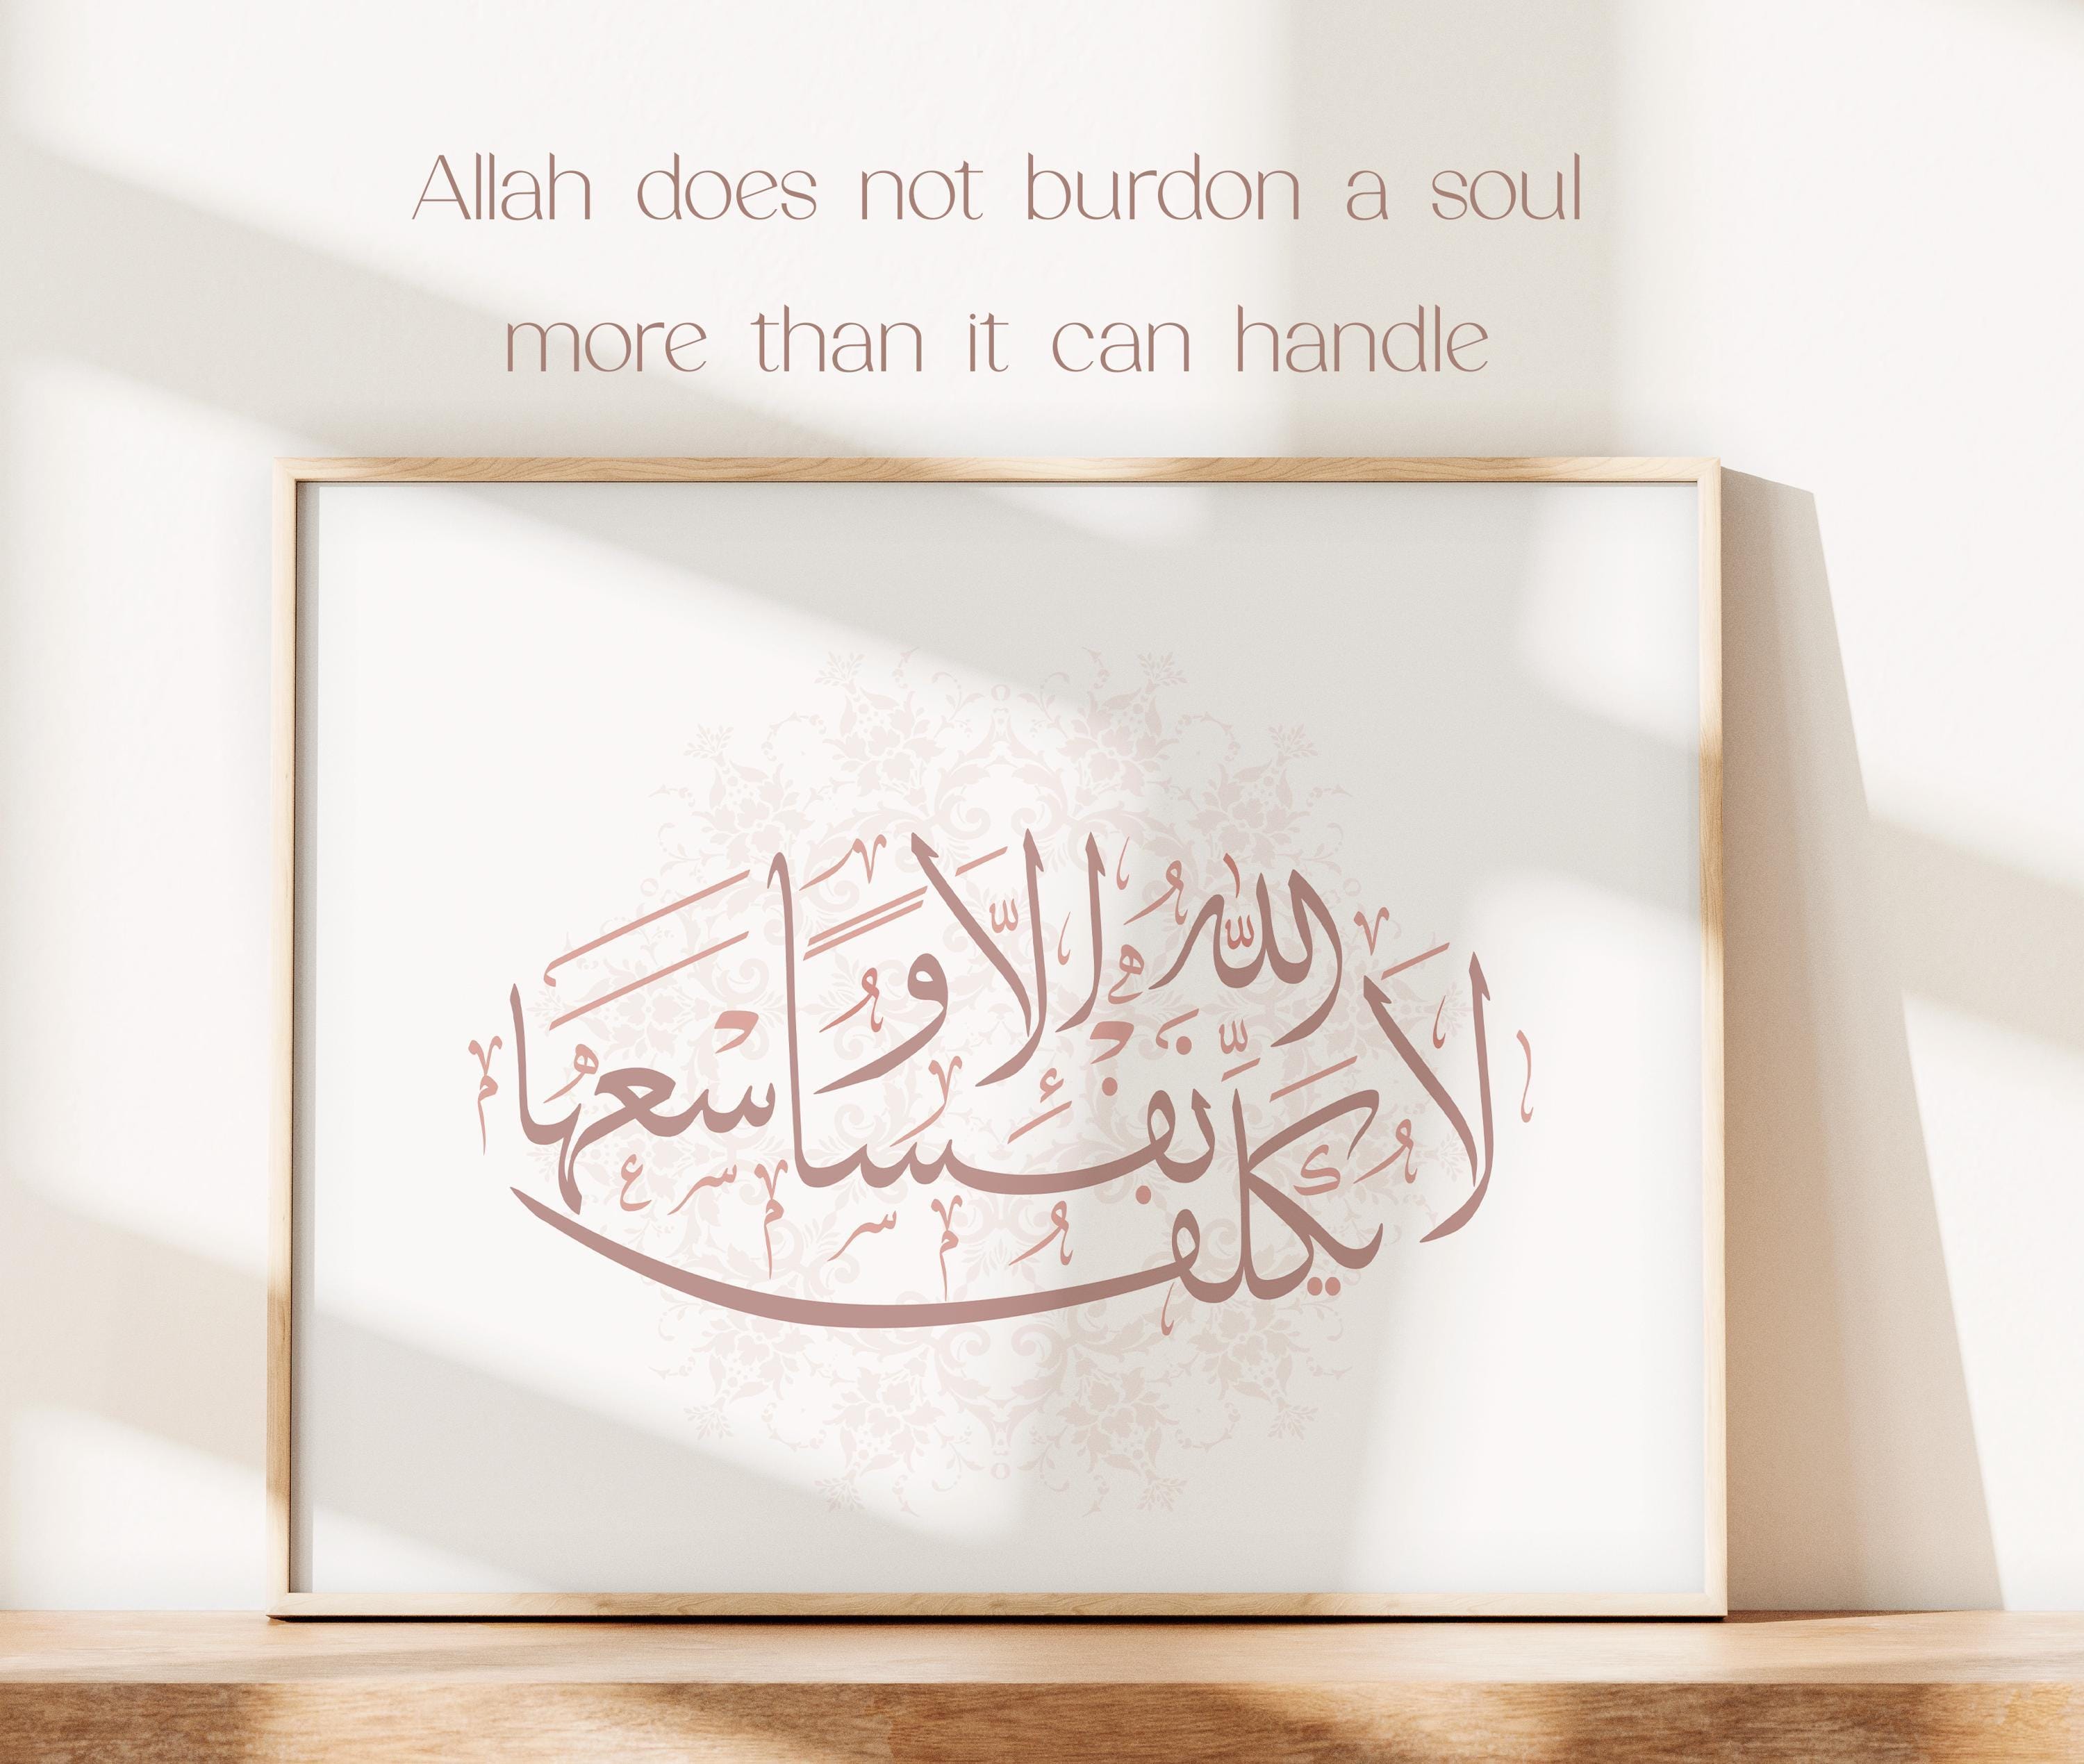 Allah does not burdon a soul
more than it can handle
لَا يُكَلِّفُ اللَّهُ نَفْسًا إِلَّا وُسْعَهَا